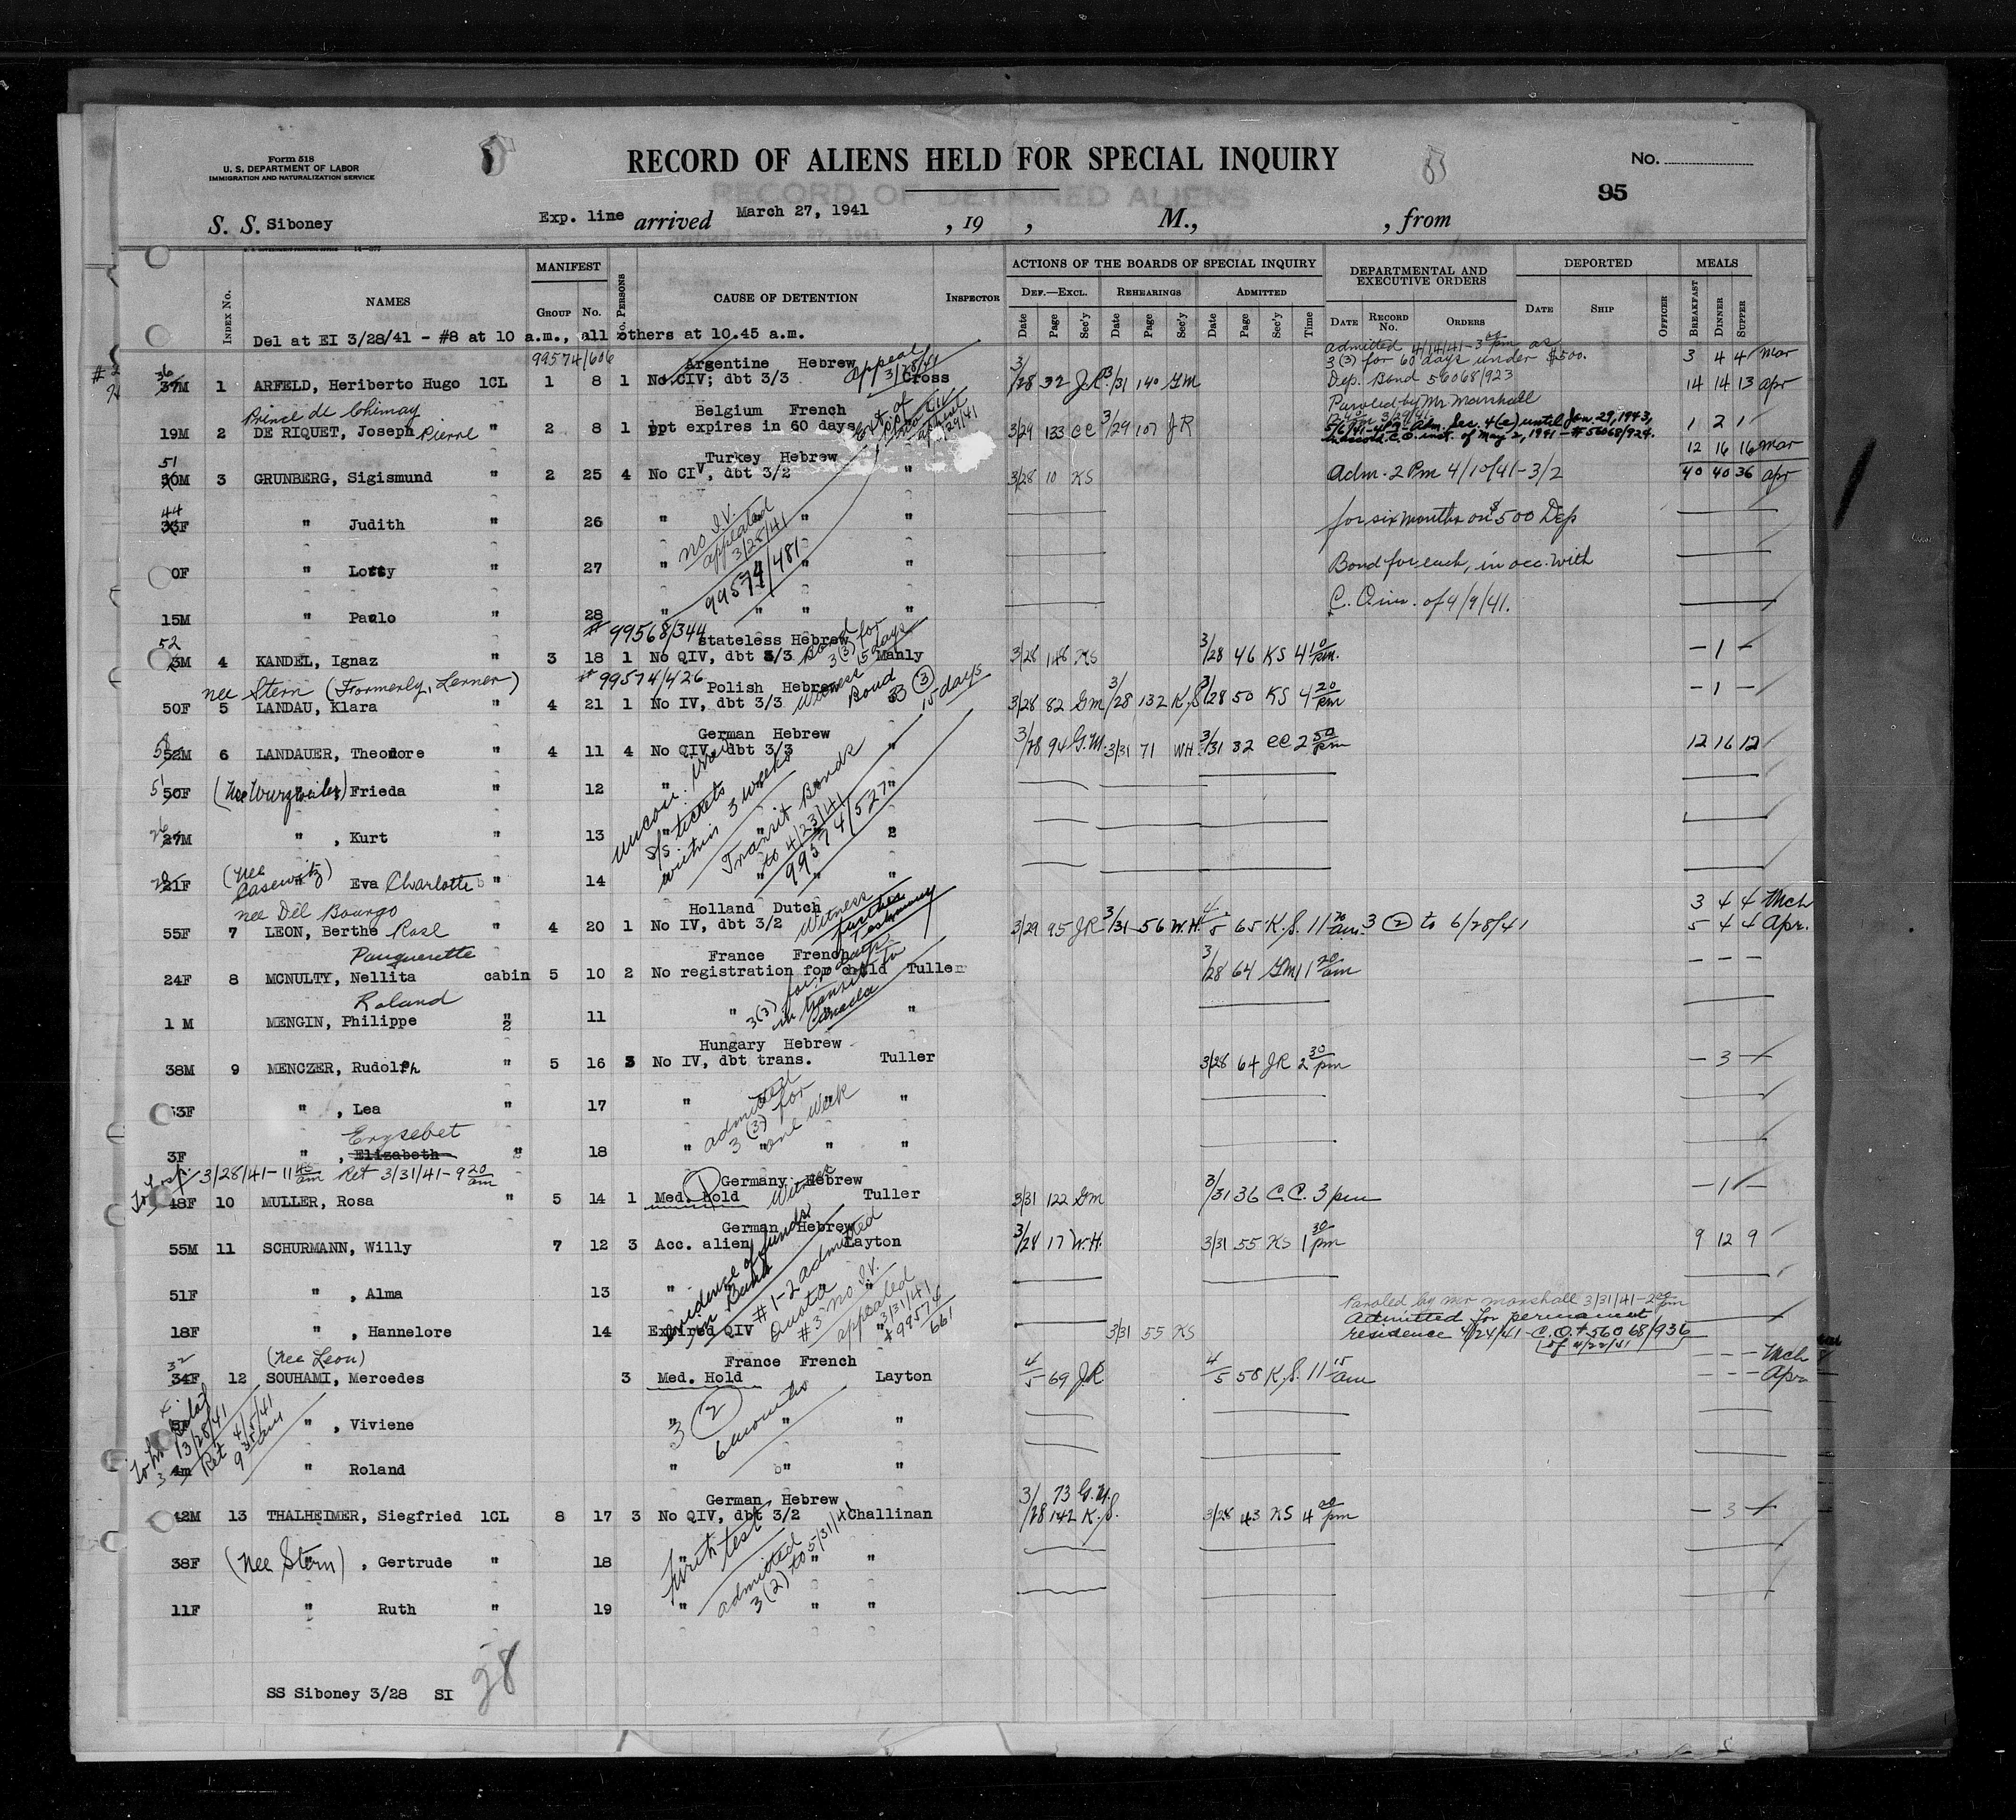 Form 518
U. S. DEPARTMENT OF LABOR
IMMIGRATION AND NATURALIZATION SERVICE
RECORD OF ALIENS HELD FOR SPECIAL INQUIRY
No.
RECORD OF DETAINED ALIENS
95
S. S. Siboney Exp. line arrived March 27, 1941 , 19 , M., , from
Index No. NAMES MANIFEST Group No. No. Persons CAUSE OF DETENTION Inspector ACTIONS OF THE BOARDS OF SPECIAL INQUIRY Def.—Excl. Rehearings Admitted DEPARTMENTAL AND EXECUTIVE ORDERS DEPORTED MEALS
Date Page Sec'y Date Page Sec'y Date Page Sec'y Time Date Record No. Orders Date Ship Officer Breakfast Dinner Supper
Del at EI 3/28/41 - #8 at 10 a.m., all others at 10.45 a.m.
99574/606 Argentine Hebrew appeal 3/28/41 admitted 4/14/41 - 3 pm as
3(3) for 60 days under $500. 3 4 4 Mar
36 37M 1 ARFELD, Heriberto Hugo 1CL 1 8 1 No CIV; dbt 3/3 Cross 3/28 32 J.R. 3/31 140 GM Dep. Bond 56068/923 14 14 13 apr
Prince de Chimay Belgium French Paroled by Mr Marshall
19M 2 DE RIQUET, Joseph Pierre " 2 8 1 ppt expires in 60 days 3/29 133 CC 3/29 107 JR 1 2 1
Adm. Sec. 4(e) until Jan. 29, 1943,
C.O. inst. of May 2, 1941 - # 56068/924.
12 16 16 Mar
51 50M 3 GRUNBERG, Sigismund " 2 25 4 Turkey Hebrew No CIV, dbt 3/2 " 3/28 10 KS Adm. 2 Pm 4/10/41 - 3/2 40 40 36 apr
44 33F " Judith " 26 " " " no I.V. appealed 3/28/41 for six months on $500 Dep
0F " Lotty " 27 " " " 99574/481 Bond for each, in acc. with
15M " Paulo " 28 " " " " C. O. ins. of 4/9/41.
# 99568/344 stateless Hebrew Bond 3(3) for 15 days
52 3M 4 KANDEL, Ignaz " 3 18 1 No QIV, dbt 3/3 Manly 3/28 148 KS 3/28 46 KS 4 10 pm. - 1 -
nee Stern (Formerly, Lerner) # 99574/426 Polish Hebrew Witness Bond 3 (3) 15 days
50F 5 LANDAU, Klara " 4 21 1 No IV, dbt 3/3 3/28 82 GM 3/28 132 K.S. 3/28 50 KS 4 20 pm - 1 -
German Hebrew
52M 6 LANDAUER, Theodore " 4 11 4 No QIV, dbt 3/3 " 3/28 94 G.M. 3/31 71 WH 3/31 32 CC 2 50 pm 12 16 12
51 50F (Nee Wurzweiler) " Frieda " 12 " "
S/S tickets within 3 weeks
26 27M " , Kurt " 13 " " Transit Bonds to 4/23/41
21F (Nee Casewitz) " Eva Charlotte " 14 " " 99574/527
nee Del Bourgo Holland Dutch Witness further Testimony 3 4 4 Mch
55F 7 LEON, Berthe Rose " 4 20 1 No IV, dbt 3/2 3/29 95 JR 3/31 56 W.H. 4/5 65 K.S. 11 am. 3 (2) to 6/28/41 5 4 4 Apr.
Paquerette France French
24F 8 MCNULTY, Nellita cabin 5 10 2 No registration for child Tuller 3/28 64 GM 11 20 am - - -
Roland
1 M MENGIN, Philippe " 11 " " 3(3) for days in transit to Canada
Hungary Hebrew
38M 9 MENCZER, Rudolph " 5 16 3 No IV, dbt trans. Tuller 3/28 64 JR 2 30 pm - 3 -
33F " , Lea " 17 " " " admitted 3(3) for one week
Erzsebet
3F " , Elizabeth " 18 " " " "
To hosp. 3/28/41 - 11 45 am Ret 3/31/41 - 9 20 am Germany Hebrew Witness
48F 10 MULLER, Rosa " 5 14 1 Med. Hold Tuller 3/31 122 GM 3/31 36 C.C. 3 pm - 1 -
German Hebrew
55M 11 SCHURMANN, Willy 7 12 3 Acc. alien Layton 3/28 17 W.H. 3/31 55 KS 1 30 pm 9 12 9
Evidence of funds in Bank
51F " , Alma 13 " " # 1-2 admitted Quota
Paroled by Mr Marshall 3/31/41 - 2 pm
Admitted for permanent
18F " , Hannelore 14 Expired QIV " #3 no I.V. appealed 3/31/41 # 99574/661 3/31 55 KS residence 4/24/41 - C.O. # 56068/936
of 4/22/41
(Nee Leon) France French - - - Mch
32 34F 12 SOUHAMI, Mercedes 3 Med. Hold Layton 4/5 69 JR 4/5 58 K.S. 11 15 am - - - Apr
3 (2) 6 months
" , Viviene " " "
Ret 4/5/41
9 35 am
4m " Roland " " "
German Hebrew 3/28 73 G.M.
42M 13 THALHEIMER, Siegfried 1CL 8 17 3 No QIV, dbt 3/2 Challinan 142 K.S. 3/28 43 KS 4 20 pm - 3 -
38F (Nee Stern) " , Gertrude " 18 " " "
admitted 3(2) to 5/31/41
11F " Ruth " 19 " " "
SS Siboney 3/28 SI 28